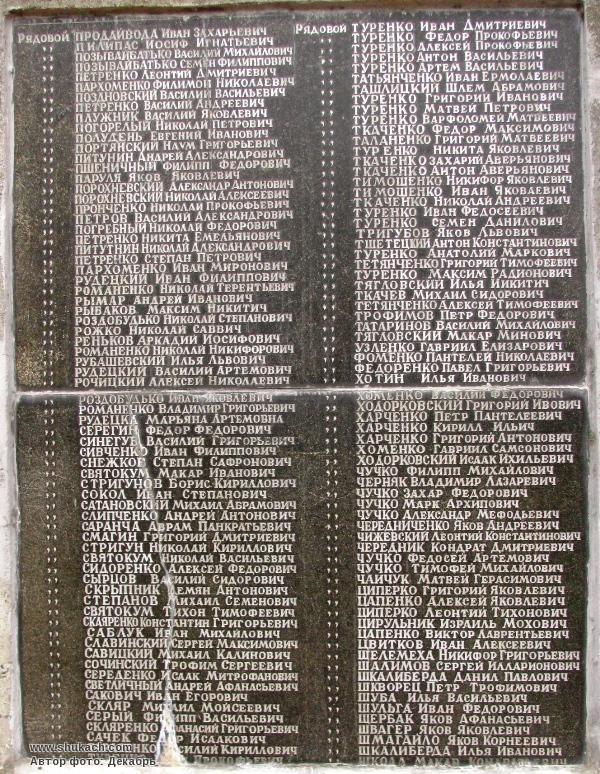 Рядовой ПРОДАЙВОДА ИВАН ЗАХАРЬЕВИЧ
" ПИЛИПАС ИОСИФ ИГНАТЬЕВИЧ
" ПОЗЫВАЙБАТЬКО ВАСИЛИЙ МИХАЙЛОВИЧ
" ПОЗЫВАЙБАТЬКО СЕМЕН ФИЛИППОВИЧ
" ПЕТРЕНКО ЛЕОНТИЙ ДМИТРИЕВИЧ
" ПАРХОМЕНКО ФИЛИМОН НИКОЛАЕВИЧ
" ПОЗДНОВСКИЙ ВАСИЛИЙ ВАСИЛЬЕВИЧ
" ПЕТРЕНКО ВАСИЛИЙ АНДРЕЕВИЧ
" ПЛУЖНИК ВАСИЛИЙ ЯКОВЛЕВИЧ
" ПОГОРЕЛЫЙ НИКОЛАЙ ПЕТРОВИЧ
" ПОЛУДЕНЬ ЕВГЕНИЙ ИВАНОВИЧ
" ПОРТЯНСКИЙ НАУМ ГРИГОРЬЕВИЧ
" ПИТУНИН АНДРЕЙ АЛЕКСАНДРОВИЧ
" ПШЕНИЧНЫЙ ФИЛИПП ФЕДОРОВИЧ
" ПАРУЛЯ ЯКОВ ЯКОВЛЕВИЧ
" ПОРОХНЕВСКИЙ АЛЕКСАНДР АНТОНОВИЧ
" ПОРОХНЕВСКИЙ НИКОЛАЙ АЛЕКСЕЕВИЧ
" ПРОНЧЕНКО НИКОЛАЙ ПРОКОФЬЕВИЧ
" ПЕТРОВ ВАСИЛИЙ АЛЕКСАНДРОВИЧ
" ПОГРЕБНЫЙ НИКОЛАЙ ФЕДОРОВИЧ
" ПЕТРЕНКО НИКИТА ЕМЕЛЬЯНОВИЧ
" ПИТУТНИН НИКОЛАЙ АЛЕКСАНДРОВИЧ
" ПЕТРЕНКО СТЕПАН ПЕТРОВИЧ
" ПАРХОМЕНКО ИВАН МИРОНОВИЧ
" РУДЕЦКИЙ ИВАН ФИЛИППОВИЧ
" РОМАНЕНКО НИКОЛАЙ ТЕРЕНТЬЕВИЧ
" РЫМАР АНДРЕЙ ИВАНОВИЧ
" РЫБАКОВ МАКСИМ НИКИТИЧ
" РОЗДОБУДЬКО НИКОЛАЙ СТЕПАНОВИЧ
" РОЖКО НИКОЛАЙ САВВИЧ
" РЕНЬКОВ АРКАДИЙ ИОСИФОВИЧ
" РОМАНЕНКО НИКОЛАЙ НИКИФОРОВИЧ
" РУБАШЕВСКИЙ ИЛЬЯ ЛЬВОВИЧ
" РУДЕЦКИЙ ВАСИЛИЙ АРТЕМОВИЧ
" РОЧИЦКИЙ АЛЕКСЕЙ НИКОЛАЕВИЧ
" РОЗДОБУДЬКО ИВАН ЯКОВЛЕВИЧ
" РОМАНЕНКО ВЛАДИМИР ГРИГОРЬЕВИЧ
" РУДЕЦКА МАРЬЯНА АРТЕМОВНА
" СЕРЕГИН ФЕДОР ФЕДОРОВИЧ
" СИНЕГУБ ВАСИЛИЙ ГРИГОРЬЕВИЧ
" СИВЧЕНКО ИВАН ФИЛИППОВИЧ
" СНЕЖКОВ СТЕПАН САФРОНОВИЧ
" СВЯТОКУМ МАКАР ИВАНОВИЧ
" СТРИГУНОВ БОРИС КИРИЛЛОВИЧ
" СОКОЛ ИВАН СТЕПАНОВИЧ
" САТАНОВСКИЙ МИХАИЛ АБРАМОВИЧ
" СЛИПЧЕНКО АНДРЕЙ АНТОНОВИЧ
" САРАНЧА АВРАМ ПАНКРАТЬЕВИЧ
" СМАГИН ГРИГОРИЙ ДМИТРИЕВИЧ
" СТРИГУН НИКОЛАЙ КИРИЛЛОВИЧ
" СВЯТОКУМ НИКОЛАЙ ВАСИЛЬЕВИЧ
" СИДОРЕНКО АЛЕКСЕЙ ФЕДОРОВИЧ
" СЫРЦОВ ВАСИЛИЙ СИДОРОВИЧ
" СКРЫПНИК ДЕМЯН АНТОНОВИЧ
" СТЕПАНОВ МИХАИЛ СЕМЕНОВИЧ
" СВЯТОКУМ ТИХОН ТИМОФЕЕВИЧ
" СКЛЯРЕНКО КОНСТАНТИН ГРИГОРЬЕВИЧ
" САБЛУК ИВАН МИХАЙЛОВИЧ
" СЛАВИНСКИЙ СЕРГЕЙ МАКСИМОВИЧ
" САВИЦКИЙ МИХАИЛ КАЛИНОВИЧ
" СОЧИНСКИЙ ТРОФИМ СЕРГЕЕВИЧ
" СЕРЕДЕНКО ИСААК МИТРОФАНОВИЧ
" СВЕТЛИЧНЫЙ АНДРЕЙ АФАНАСЬЕВИЧ
" САКОВИЧ ИВАН ЕГОРОВИЧ
" СКЛЯР МИХАИЛ МОЙСЕЕВИЧ
" СЕРЫЙ ФИЛИПП ВАСИЛЬЕВИЧ
" СКЛЯРЕНКО АФАНАСИЙ ГРИГОРЬЕВИЧ
" САЧЕК ФЕДОР ИСААКОВИЧ
ВАСИЛИЙ КИРИЛЛОВИЧ
ПРОКОФЬЕВИЧ
Рядовой ТУРЕНКО ИВАН ДМИТРИЕВИЧ
" ТУРЕНКО ФЕДОР ПРОКОФЬЕВИЧ
" ТУРЕНКО АЛЕКСЕЙ ПРОКОФЬЕВИЧ
" ТУРЕНКО АНТОН ВАСИЛЬЕВИЧ
" ТУРЕНКО АРТЕМ ВАСИЛЬЕВИЧ
" ТАТЬЯНЧЕНКО ИВАН ЕРМОЛАЕВИЧ
" ТАШЛИЦКИЙ ШЛЕМ АБРАМОВИЧ
" ТУРЕНКО ГРИГОРИЙ ИВАНОВИЧ
" ТУРЕНКО МАТВЕЙ ПЕТРОВИЧ
" ТУРЕНКО ВАРФОЛОМЕЙ МАТВЕЕВИЧ
" ТКАЧЕНКО ФЕДОР МАКСИМОВИЧ
" ТАЛАНЕНКО ГРИГОРИЙ МАТВЕЕВИЧ
" ТУРЕНКО НИКИТА ЯКОВЛЕВИЧ
" ТКАЧЕНКО ЗАХАРИЙ АВЕРЬЯНОВИЧ
" ТКАЧЕНКО АНТОН АВЕРЬЯНОВИЧ
" ТИМОШЕНКО НИКИФОР ЯКОВЛЕВИЧ
" ТИМОШЕНКО ИВАН ЯКОВЛЕВИЧ
" ТКАЧЕНКО НИКОЛАЙ АНДРЕЕВИЧ
" ТУРЕНКО ИВАН ФЕДОСЕЕВИЧ
" ТУРЕНКО СЕМЕН ДАНИЛОВИЧ
" ТРИГУБОВ ЯКОВ ЛЬВОВИЧ
" ТИШЕТЕЦКИЙ АНТОН КОНСТАНТИНОВИЧ
" ТУРЕНКО АНАТОЛИЙ МАРКОВИЧ
" ТЕТЯНЧЕНКО ГРИГОРИЙ ТИМОФЕЕВИЧ
" ТУРЕНКО МАКСИМ РАДИОНОВИЧ
" ТЯГЛОВСКИЙ ИЛЬЯ НИКИТИЧ
" ТКАЧЕВ МИХАИЛ СИДОРОВИЧ
" ТЕТЯНЧЕНКО АЛЕКСЕЙ ТИМОФЕЕВИЧ
" ТРОФИМОВ ПЕТР ФЕДОРОВИЧ
" ТАТАРИНОВ ВАСИЛИЙ МИХАЙЛОВИЧ
" ТЯГЛОВСКИЙ МАКАР МИНОВИЧ
" УЗДЕНКО ГАВРИИЛ ЕЛИЗАРОВИЧ
" ФОМЕНКО ПАНТЕЛЕЙ НИКОЛАЕВИЧ
" ФЕДОРЕНКО ПАВЕЛ ГРИГОРЬЕВИЧ
" ХОТИН ИЛЬЯ ИВАНОВИЧ
" ХОМЕНКО ВАСИЛИЙ ФЕДОРОВИЧ
" ХОДОРКОВСКИЙ ГРИГОРИЙ ИВОВИЧ
" ХАРЧЕНКО ПЕТР ПАНТЕЛЕЕВИЧ
" ХАРЧЕНКО КИРИЛЛ ИЛЬИЧ
" ХАРЧЕНКО ГРИГОРИЙ АНТОНОВИЧ
" ХОМЕНКО ГАВРИИЛ САМСОНОВИЧ
" ХОДОРКОВСКИЙ ИСААК ИХИЛЬЕВИЧ
" ЧУЧКО ФИЛИПП МИХАЙЛОВИЧ
" ЧЕРНЯК ВЛАДИМИР ЛАЗАРЕВИЧ
" ЧУЧКО ЗАХАР ФЕДОРОВИЧ
" ЧУЧКО МАРК АРХИПОВИЧ
" ЧУЧКО АЛЕКСАНДР МЕФОДЬЕВИЧ
" ЧЕРЕДНИЧЕНКО ЯКОВ АНДРЕЕВИЧ
" ЧИЖЕВСКИЙ ЛЕОНТИЙ КОНСТАНТИНОВИЧ
" ЧЕРЕДНИК КОНДРАТ ДМИТРИЕВИЧ
" ЧУЧКО ФЕДОСЕЙ АРТЕМОВИЧ
" ЧУЧКО ТИМОФЕЙ МИХАЙЛОВИЧ
" ЧАЙЧУК МАТВЕЙ ГЕРАСИМОВИЧ
" ЦИПЕРКО ГРИГОРИЙ ЯКОВЛЕВИЧ
" ЦАПЕНКО АЛЕКСЕЙ ЯКОВЛЕВИЧ
" ЦИПЕРКО ЛЕОНТИЙ ТИХОНОВИЧ
" ЦИРУЛЬНИК ИЗРАИЛЬ МОХОВИЧ
" ЦАПЕНКО ВИКТОР ЛАВРЕНТЬЕВИЧ
" ЦВИТКОВ ИВАН АЛЕКСЕЕВИЧ
" ШЕЛЕМЕХА НИКИФОР ГРИГОРЬЕВИЧ
" ШАЛИМОВ СЕРГЕЙ ИЛЛАРИОНОВИЧ
" ШКАЛИБЕРДА ДАНИЛ ПАВЛОВИЧ
" ШКВОРЕЦ ПЕТР ТРОФИМОВИЧ
" ШУБА ИЛЬЯ ВАСИЛЬЕВИЧ
" ШУЛЬГА ИВАН ФЕДОРОВИЧ
" ЩЕРБАК ЯКОВ АФАНАСЬЕВИЧ
" ШВАГЕР ЯКОВ ЯКОВЛЕВИЧ
" ШМАГАЙЛО ЯКОВ КОРНЕЕВИЧ
" ШКАЛИБЕРДА ИЛЬЯ ИВАНОВИЧ
" ШКОДА МАКАР КОНДРАТЬЕВИЧ
www.shukach.com
Автор фото: Декабрь